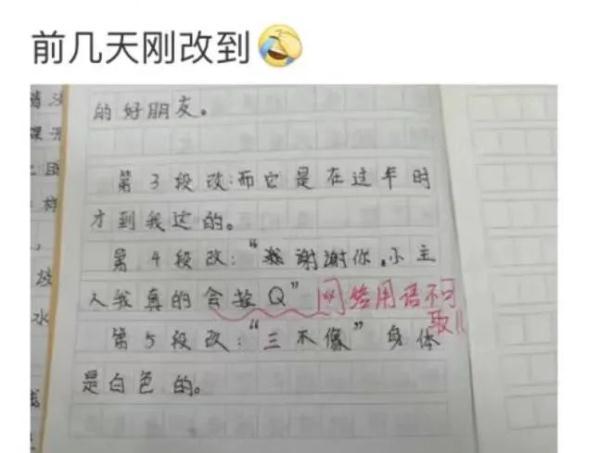 前几天刚改到
的好朋友。
第3段改:而它是在过年时
才到我这的。
第4段改:“谢谢你,小主
人我真的会谢Q” 网络用语不可
取!!
第5段改:“三不像”身体
是白色的。